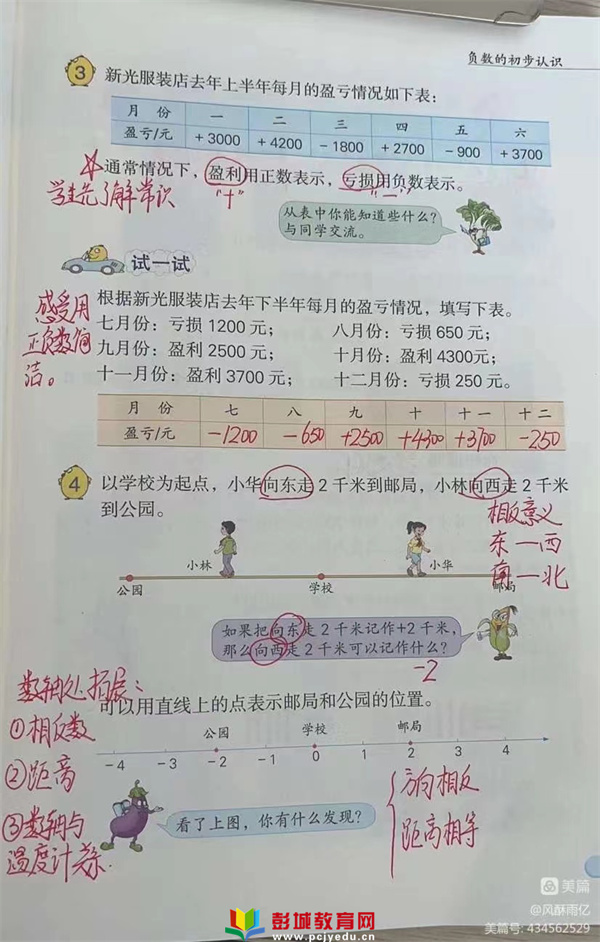 负数的初步认识
3 新光服装店去年上半年每月的盈亏情况如下表:
月 份 一 二 三 四 五 六
盈亏/元 +3000 +4200 -1800 +2700 -900 +3700
通常情况下,盈利用正数表示,亏损用负数表示。
学生先了解常识 "+" "-"
从表中你能知道些什么?
与同学交流。
试一试
感受用
正负数简
洁。
根据新光服装店去年下半年每月的盈亏情况,填写下表。
七月份:亏损1200元; 八月份:亏损650元;
九月份:盈利2500元; 十月份:盈利4300元;
十一月份:盈利3700元; 十二月份:亏损250元。
月 份 七 八 九 十 十一 十二
盈亏/元 -1200 -650 +2500 +4300 +3700 -250
4 以学校为起点,小华向东走2千米到邮局,小林向西走2千米
到公园。
相反意义
东—西
南—北
小林 小华
公园 学校 邮局
如果把向东走2千米记作+2千米,
那么向西走2千米可以记作什么?
-2
数轴 拓展:
①相反数
②距离
③数轴与
温度计
可以用直线上的点表示邮局和公园的位置。
公园 学校 邮局
-4 -3 -2 -1 0 1 2 3 4
看了上图,你有什么发现?
方向相反
距离相等
美篇
@风酥雨亿
美篇号: 434562529
彭城教育网
www.pcjyedu.cn